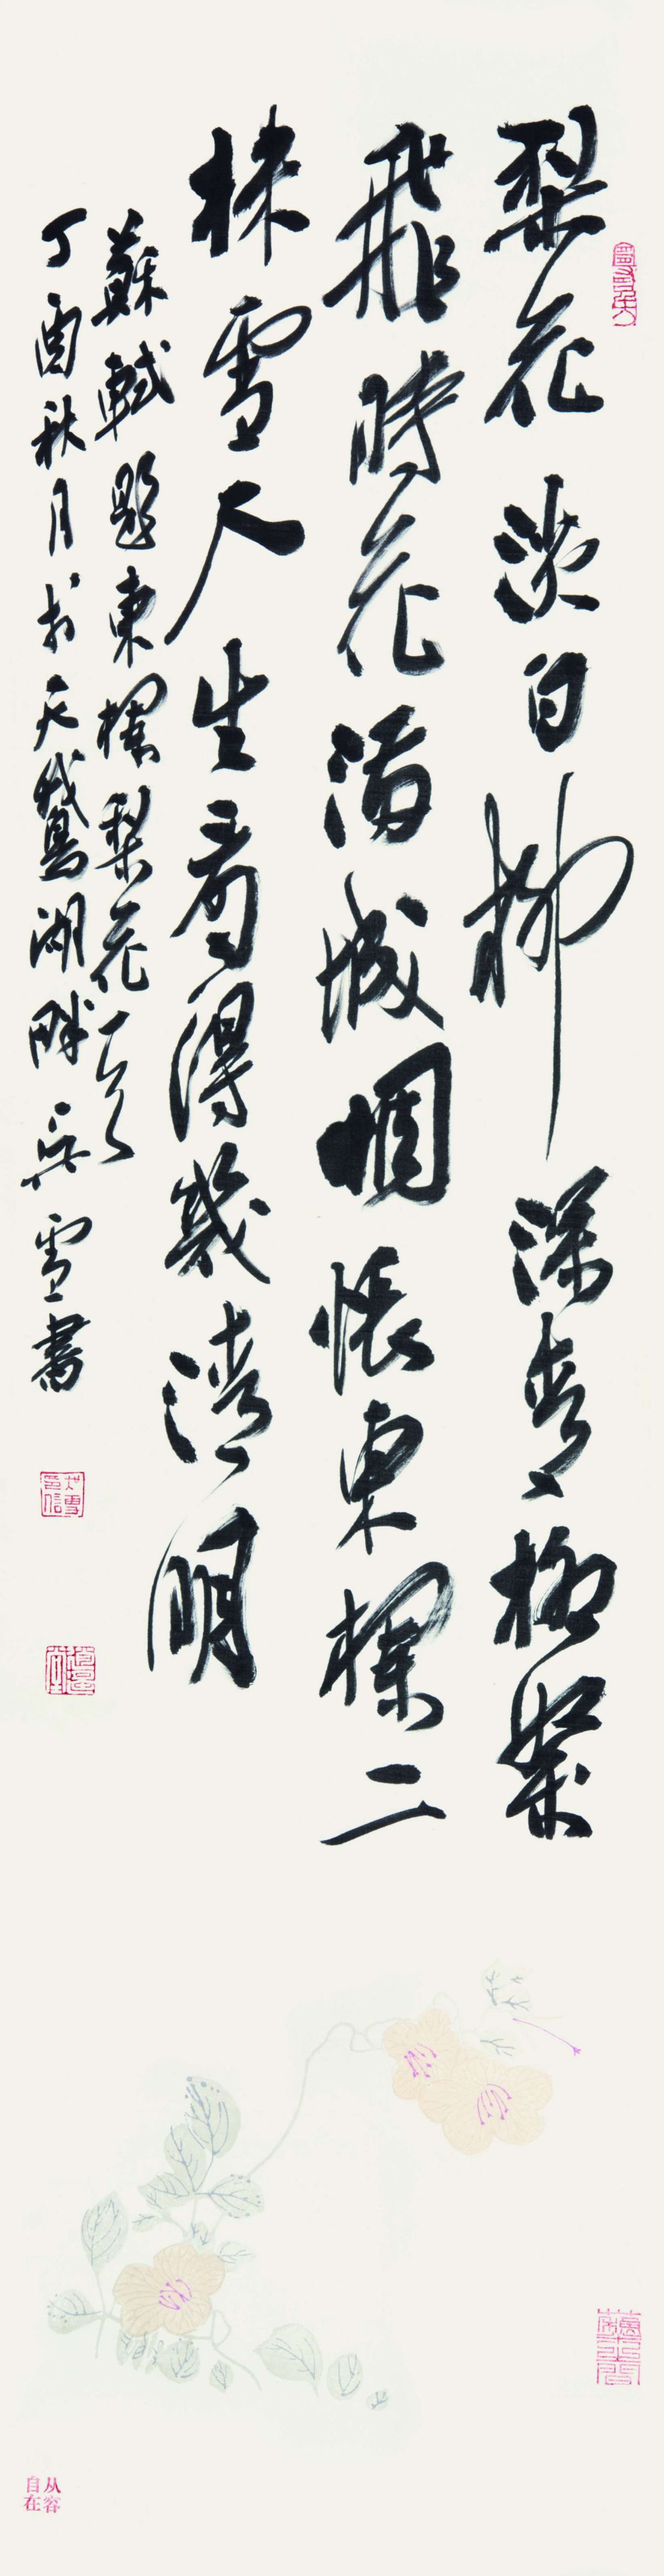 梨花淡白柳深青柳絮
飛時花滿城惆悵東欄二
株雪人生看得幾清明
蘇軾題東欄梨花一首
丁酉秋月於天鵝湖畔雪書
从容
自在